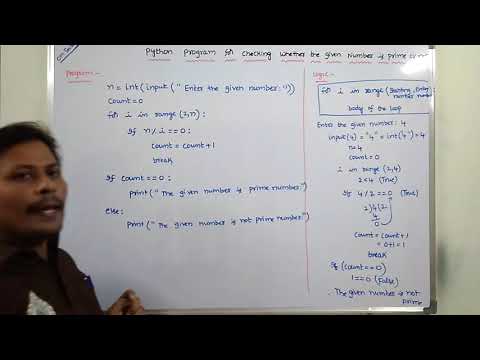 Python Program for Checking Whether the given Number is prime
Program:-
n = int(input("Enter the given number:"))
Count=0
for i in range(2,n):
if n%i==0:
count=count+1
break
if count==0:
print("The given number is prime number")
else:
print("The given number is not prime number")
Logic:-
for i in range(Starting number, Ending number):
body of the loop
Enter the given number: 4
input(4)="4"=int("4")=4
n=4
count=0
i in range(2,4)
2<4 (True)
if 4%2==0 (True)
2)4(2
4
0
count=count+1
=0+1=1
break
if (count==0)
1==0 (False)
The given number is not prime